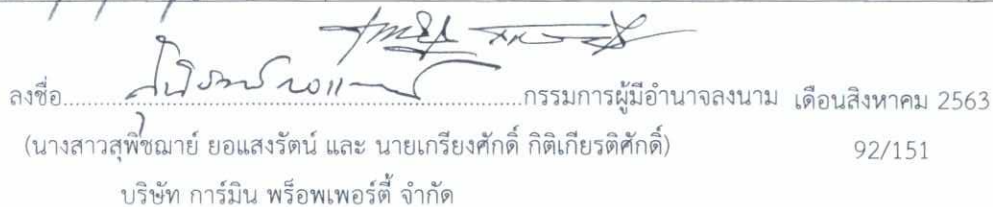 ลงชื่อ................................................................กรรมการผู้มีอำนาจลงนาม เดือนสิงหาคม 2563
(นางสาวสุพิชฌาย์ ยอแสงรัตน์ และ นายเกรียงศักดิ์ กิติเกียรติศักดิ์) 92/151
บริษัท การ์มิน พร็อพเพอร์ตี้ จำกัด